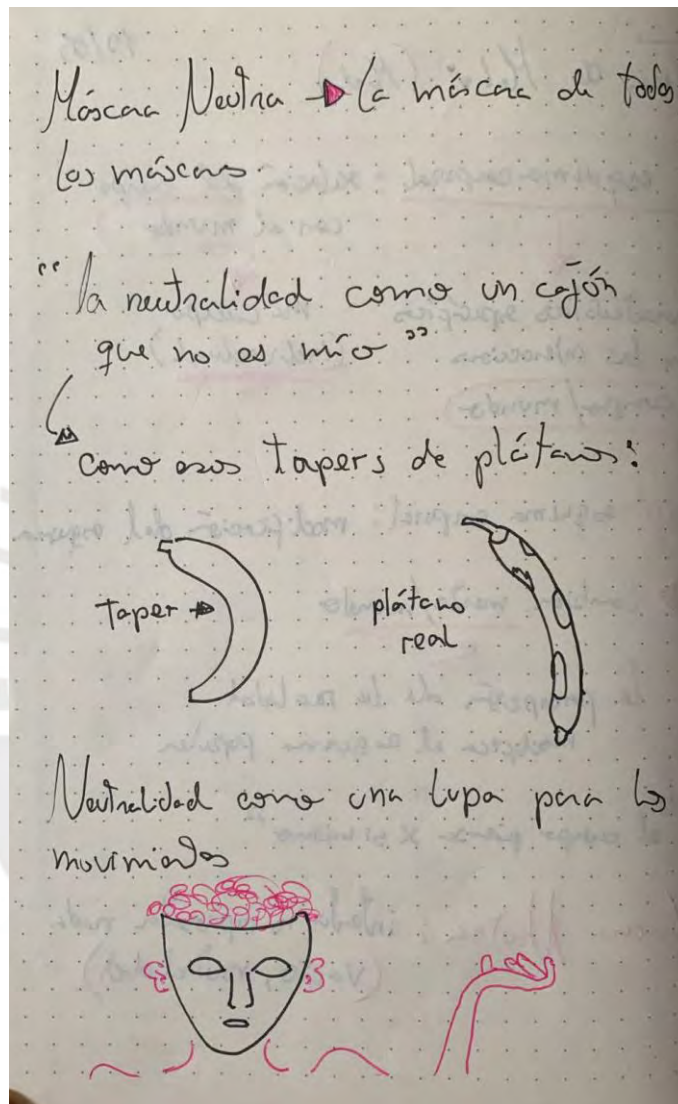 Máscara Neutra → La máscara de todas
las máscaras.
"la neutralidad como un cajón
que no es mío"
como esos tapers de plátanos:
taper →
plátano
real
Neutralidad como una lupa para los
movimientos